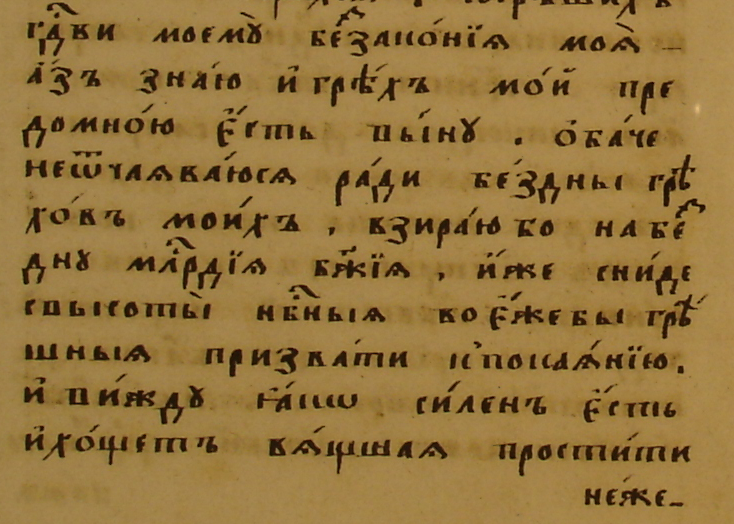 гдⷭ҇ви моемꙋ̀ беⷥ҇зако́нїѧ моѧ̀
а҆́зъ зна́ю и҆грѣ́хъ мо́й пре
до мно́ю є҆́сть вы́нꙋ . ѻ҆ба́че
не ѿчаѧва́юсѧ ра́ди бе́здны грѣ
хо́въ мои́хъ , взира́ю бо на беⷥ҇
днꙋ млⷭ҇рдїѧ бж҃їѧ , и҆́же сни́де
свысоты̀ нбⷭ҇ныѧ во є҆́же бы грѣ́
шныѧ призва́ти к̾покаѧ́нїю .
и҆ ви́ждꙋ ꙗ҆́кѡ си́ленъ є҆́сть
и҆хо́щетъ вѧ́щшаѧ прости́ти
не́же